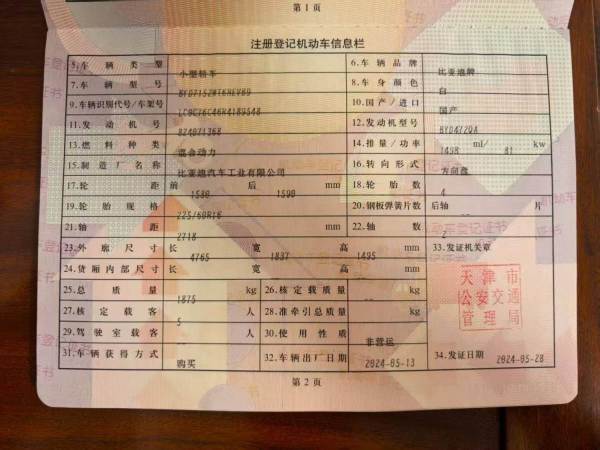 第1页
注册登记机动车信息栏
5.车辆类型 小型轿车 6.车辆品牌 比亚迪牌
7.车辆型号 BYD7152WT6HEVB9 8.车身颜色 白
9.车辆识别代号/车架号 LC0C76C46R4189548 10.国产/进口 国产
11.发动机号 12.发动机型号 BYD472QA
13.燃料种类 混合动力 14.排量/功率 1498 ml/ 81 kw
15.制造厂名称 比亚迪汽车工业有限公司 16.转向形式 方向盘
17.轮距 前 1580 后 1590 mm 18.轮胎数 4
19.轮胎规格 225/60R16 20.钢板弹簧片数 后轴 片
21.轴距 2718 mm 22.轴数 2
23.外廓尺寸 长 4765 宽 1837 高 1495 mm 33.发证机关章
24.货厢内部尺寸 长 宽 高 mm
25.总质量 1875 kg 26.核定载质量 kg
27.核定载客 5 人 28.准牵引总质量 kg
29.驾驶室载客 人 30.使用性质 非营运
31.车辆获得方式 购买 32.车辆出厂日期 2024-05-13 34.发证日期 2024-05-28
天津市
公安交通
管理局
第2页